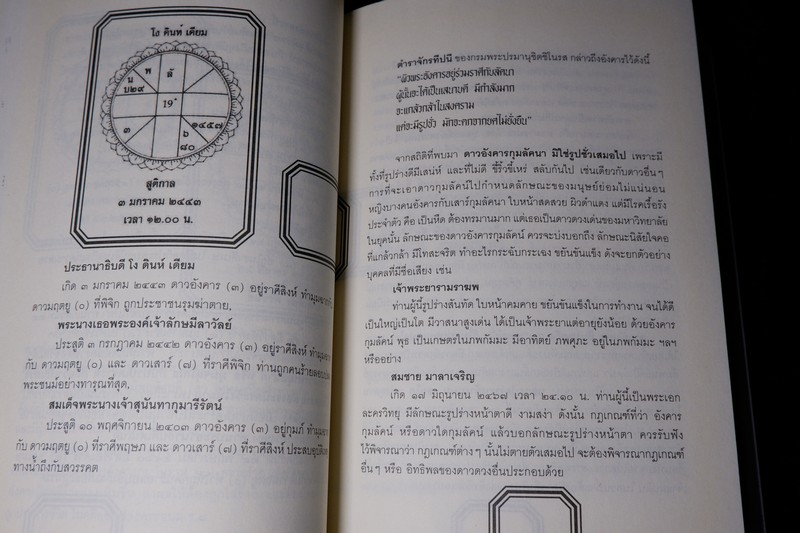 โง ดินห์ เดียม
น
พ
ลั
บ๒๙
19°
๓
๑๔๕๗
๖
๘๐
สูติกาล
๓ มกราคม ๒๔๔๓
เวลา ๑๒.๐๐ น.
ประธานาธิบดี โง ดินห์ เดียม
เกิด ๓ มกราคม ๒๔๔๓ ดาวอังคาร (๓) อยู่ราศีสิงห์ ทำมุมฉากกับ
ดาวมฤตยู (๐) ที่พิจิก ถูกประชาชนรุมฆ่าตาย,
พระนางเธอพระองค์เจ้าลักษมีลาวัลย์
ประสูติ ๓ กรกฎาคม ๒๔๔๒ ดาวอังคาร (๓) อยู่ราศีสิงห์ ทำมุมฉาก
กับ ดาวมฤตยู (๐) และ ดาวเสาร์ (๗) ที่ราศีพิจิก ท่านถูกคนร้าย
พระชนม์อย่างทารุณที่สุด,
สมเด็จพระนางเจ้าสุนันทากุมารีรัตน์
ประสูติ ๑๐ พฤศจิกายน ๒๔๐๓ ดาวอังคาร (๓) อยู่กุมภ์ ทำมุม
กับ ดาวมฤตยู (๐) ที่ราศีพฤษภ และ ดาวเสาร์ (๗) ที่ราศีสิงห์ ประสบอุบัติ
ทางน้ำถึงกับสวรรคต
ตำราจักรทีปนี ของกรมพระปรมานุชิตชิโนรส กล่าวถึงอังคารไว้ดังนี้
"ผิวพระอังคารอยู่ร่วมราศีกับลัคนา
ผู้นั้นจะได้เป็นเสนาบดี มีกำลังมาก
จะแกล้วกล้าในสงคราม
แต่จะมีรูปชั่ว มักจะตกยากยศไม่ยั่งยืน"
จากสถิติที่พบมา ดาวอังคารกุมลัคนา มิใช่รูปชั่วเสมอไป เพราะมี
ทั้งที่รูปร่างดีมีเสน่ห์ และที่ไม่ดี ขี้ริ้วขี้เหร่ สลับกันไป เช่นเดียวกับดาวอื่นๆ
การที่จะเอาดาวกุมลัคน์ไปกำหนดลักษณะของมนุษย์ย่อมไม่แน่นอน
หญิงบางคนอังคารกับเสาร์กุมลัคนา ใบหน้าสดสวย ผิวดำแดง แต่มีโรคเรื้อรัง
ประจำตัว คือ เป็นหืด ต้องทรมานมาก แต่เธอเป็นดาวดวงเด่นของมหาวิทยาลัย
ในยุคนั้น ลักษณะของดาวอังคารกุมลัคน์ ควรจะบ่งบอกถึง ลักษณะนิสัยใจคอ
ที่แกล้วกล้า มีโทสะจริต ทำอะไรกระฉับกระเฉง ขยันขันแข็ง ดังจะยกตัวอย่าง
บุคคลที่มีชื่อเสียง เช่น
เจ้าพระยารามราฆพ
ท่านผู้นี้รูปร่างสันทัด ใบหน้าคมคาย ขยันขันแข็งในการทำงาน จนได้ดี
เป็นใหญ่เป็นโต มีวาสนาสูงเด่น ได้เป็นเจ้าพระยาแต่อายุยังน้อย ด้วยอังคาร
กุมลัคน์ พุธ เป็นเกษตรในภพกัมมะ มีอาทิตย์ ภพศุภะ อยู่ในภพกัมมะ ฯลฯ
หรืออย่าง
สมชาย มาลาเจริญ
เกิด ๑๗ มิถุนายน ๒๔๖๗ เวลา ๒๔.๑๐ น. ท่านผู้นี้เป็นพระเอก
ละครวิทยุ มีลักษณะรูปร่างหน้าตาดี งามสง่า ดังนั้น กฎเกณฑ์ที่ว่า อังคาร
กุมลัคน์ หรือดาวใดกุมลัคน์ แล้วบอกลักษณะรูปร่างหน้าตา ควรรับฟัง
ไว้พิจารณาว่า กฎเกณฑ์ต่างๆ นั้นไม่ตายตัวเสมอไป จะต้องพิจารณากฎเกณฑ์
อื่นๆ หรือ อิทธิพลของดาวดวงอื่นประกอบด้วย